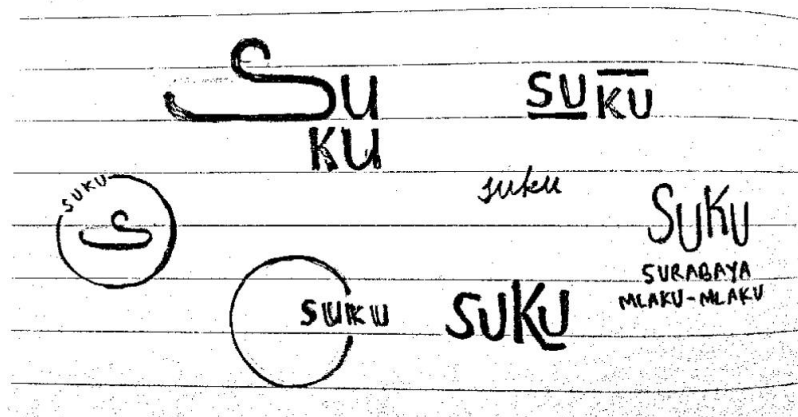 SU
KU
SU KU
suku
SUKU
SUKU
SURABAYA
MLAKU-MLAKU
SUKU
SUKU